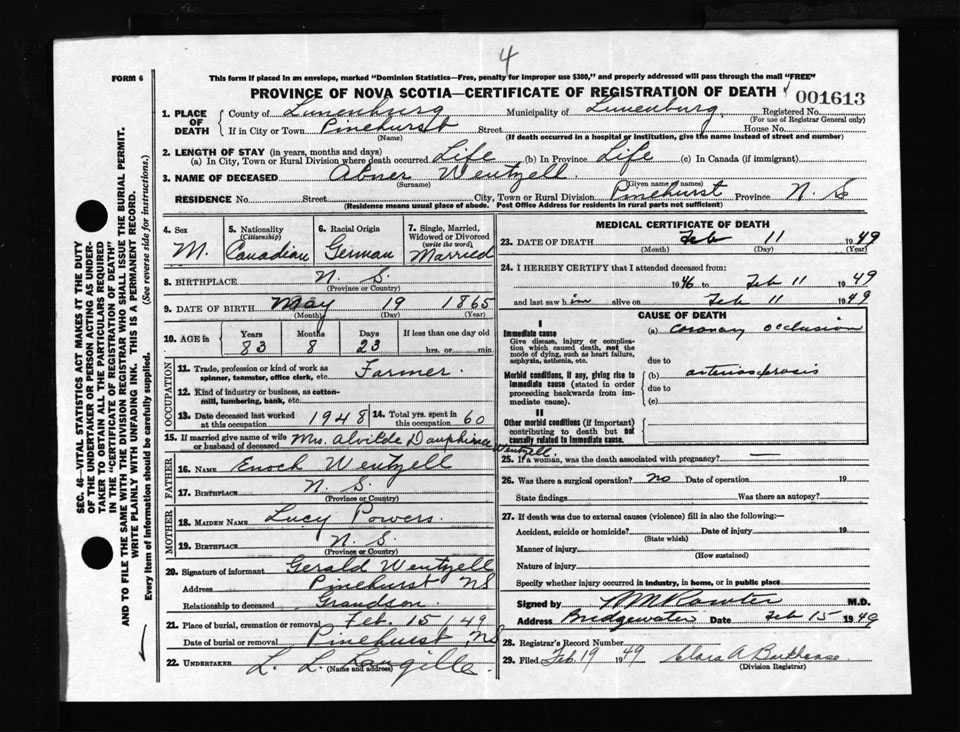 4
FORM 6
This form if placed in an envelope, marked "Dominion Statistics—Free, penalty for improper use $300," and properly addressed will pass through the mail "FREE"
PROVINCE OF NOVA SCOTIA—CERTIFICATE OF REGISTRATION OF DEATH
001613
1. PLACE OF DEATH
County of Lunenburg Municipality of Lunenburg Registered No.
(For use of Registrar General only)
If in City or Town Pinehurst Street House No.
(Name) (If death occurred in a hospital or institution, give the name instead of street and number)
2. LENGTH OF STAY (in years, months and days)
(a) In City, Town or Rural Division where death occurred Life (b) In Province Life (c) In Canada (if immigrant)
3. NAME OF DECEASED Abner Wentzell
(Surname) (Given name or names)
RESIDENCE No. Street City, Town or Rural Division Pinehurst Province N. S
(Residence means usual place of abode. Post Office Address for residents in rural parts not sufficient)
4. Sex M.
5. Nationality (Citizenship) Canadian
6. Racial Origin German
7. Single, Married, Widowed or Divorced (write the word) Married
8. BIRTHPLACE N. S.
(Province or Country)
9. DATE OF BIRTH May 19 1865
(Month) (Day) (Year)
10. AGE in Years 83 Months 8 Days 23 If less than one day old hrs. or min.
OCCUPATION
11. Trade, profession or kind of work as spinner, teamster, office clerk, etc. Farmer.
12. Kind of industry or business, as cotton-mill, lumbering, bank, etc.
13. Date deceased last worked at this occupation 1948 14. Total yrs. spent in this occupation 60
15. If married give name of wife or husband of deceased Mrs. Alvilde Dauphinee Wentzell.
FATHER
16. NAME Enoch Wentzell
17. BIRTHPLACE N. S.
(Province or Country)
MOTHER
18. MAIDEN NAME Lucy Powers.
19. BIRTHPLACE N. S.
(Province or Country)
20. Signature of informant Gerald Wentzell
Address Pinehurst NS
Relationship to deceased Grandson.
21. Place of burial, cremation or removal Feb. 15/49
Date of burial or removal Pinehurst NS
22. UNDERTAKER L. L. Langille.
(Name and address)
MEDICAL CERTIFICATE OF DEATH
23. DATE OF DEATH Feb 11 1949
(Month) (Day) (Year)
24. I HEREBY CERTIFY that I attended deceased from:
1946 to Feb 11 1949
and last saw him alive on Feb 11 1949
CAUSE OF DEATH
I
Immediate cause
Give disease, injury or complication which caused death, not the mode of dying, such as heart failure, asphyxia, asthenia, etc.
(a) coronary occlusion
due to
Morbid conditions, if any, giving rise to immediate cause (stated in order proceeding backwards from immediate cause).
(b) arteriosclerosis
due to
(c)
II
Other morbid conditions (if important) contributing to death but not causally related to immediate cause.
25. If a woman, was the death associated with pregnancy? —
26. Was there a surgical operation? No Date of operation 19
State findings Was there an autopsy?
27. If death was due to external causes (violence) fill in also the following:—
Accident, suicide or homicide? Date of injury 19
(State which)
Manner of injury
(How sustained)
Nature of injury
Specify whether injury occurred in industry, in home, or in public place
Signed by M.D.
Address Bridgewater Date Feb 15 1949
28. Registrar's Record Number
29. Filed Feb. 19 1949 Clara A Barkhouse.
(Division Registrar)
SEC. 46—VITAL STATISTICS ACT MAKES IT THE DUTY
OF THE UNDERTAKER OR PERSON ACTING AS UNDER-
TAKER TO OBTAIN ALL THE PARTICULARS REQUIRED
IN THE "CERTIFICATE OF REGISTRATION OF DEATH"
AND TO FILE THE SAME WITH THE DIVISION REGISTRAR WHO SHALL ISSUE THE BURIAL PERMIT.
WRITE PLAINLY WITH UNFADING INK. THIS IS A PERMANENT RECORD.
Every item of information should be carefully supplied. (See reverse side for instructions.)